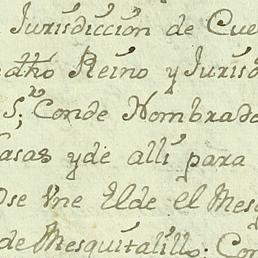 Jurisdiccion de Cue
edho Reino y Jurisd
S.r Conde Nombrado
Casas yde alli para
Ose Vne Elde el Mesq
de Mesquitalillo: Con